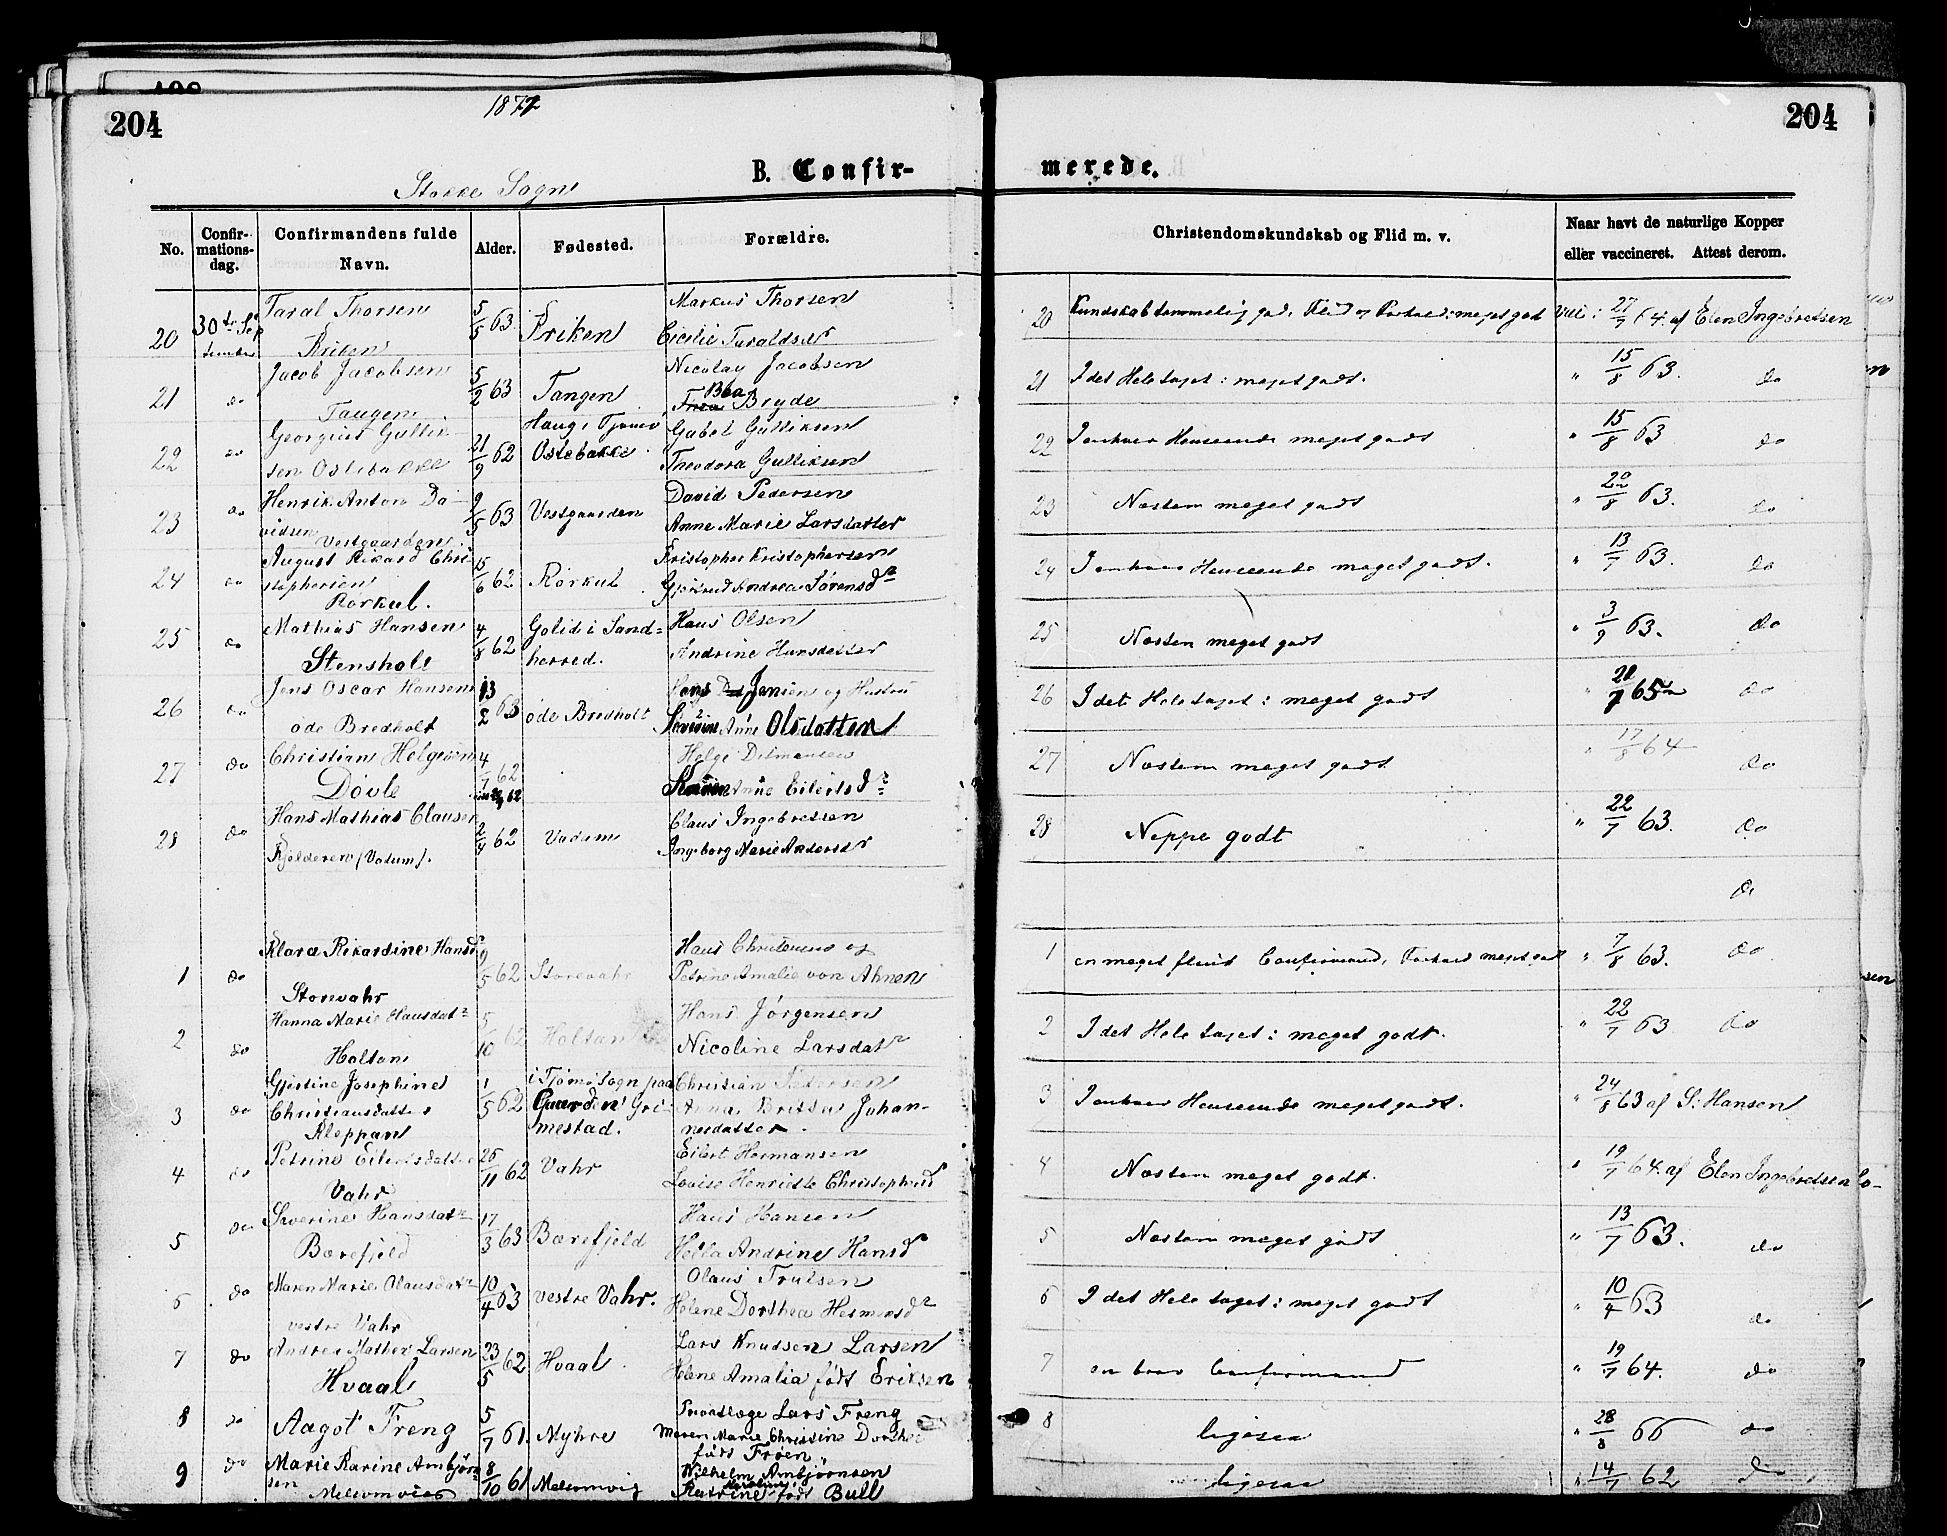 204
1877
204
B. Confir-
merede.
Stokke Sogn
No.
Confir-
mations-
dag.
Confirmandens fulde
Navn.
Alder.
Fødested.
Forældre.
Christendomskundskab og Flid m. v.
Naar havt de naturlige Kopper
eller vaccineret. Attest derom.
20 30te Sep tember Taral Thorsen 5/5 63 Markus Thorsen
Cicilie Taraldsdr
20 Kundskab temmelig god, Flid og Forhold: meget godt 27/7 64. af Elen Ingebretsen
21 do Jacob Jacobsen 5/2 63 Tangen Nicolay Jacobsen
Tangen Bryde
21 I det Hele taget: meget godt. " 15/8 63. do
22 do Georgius Gullik- 21/9 62 Haug i Tjømø Gabel Gulliksen
sen Ostebakke Ostebakke Theodora Gulliksen
22 I enhver Henseende meget godt " 15/8 63 do
23 do Henrik Anton Da- 9/5 63 Vestgaarden David Pedersen
vidsen Vestgaarden Anne Marie Larsdatter
23 Næsten meget godt " 20/8 63. do
24 do August Rikard Chri- 15/6 62 Rørkul Kristopher Kristophersen
stophersen Andrea Sørensdr
Rørkul.
24 I enhver Henseende meget godt. " 13/7 63. do
25 do Mathias Hansen 4/8 62 Golid i Sand= Hans Olsen
Stensholt herred. Andrine Hansdatter
25 Næsten meget godt " 3/9 63. do
26 do Jens Oscar Hansen 13/2 63 øde Bredholt Jensen og Hustru
øde Bredholt Anne Olsdatter
26 I det Hele taget: meget godt " 7 65 do
27 do Christian Helgesen 4/7 62 Helge
Døvle Anne Eilertsdr
27 Næsten meget godt " 17/8 64 do
28 do Hans Mathias Clausen 2/4 62 Vadum Claus Ingebretsen
Kjelderen (Vadum). Ingeborg Marie Andersdr
28 Neppe godt " 22/7 63. do
do
1 do Klara Rikardine Hansdr 9/5 62 Storevahr Hans Christensen og
Storvahr Petrine Amalie von Ahnen
1 en meget flink Confirmand, Forhold meget godt " 7/8 63. do
2 do Hanna Marie Hansdatr 5/10 62 Holtan Hans Jørgensen
Holtan Nicoline Larsdatr
2 I det Hele taget: meget godt. " 22/7 63 do
3 do Gjestine Josephine 1/5 62 i Tjømø Sogn paa Christian Pedersen
Christiansdatter Gaarden Gri- Anna Britta Johan-
Kleppan mestad. nesdatter.
3 I enhver Henseende meget godt. " 24/8 63 af S: Hansen
4 do Petrine Eilertsdatter 26/11 62 Vahr Eilert Hermansen
Vahr Lovise Henriette Christophersd
4 Næsten meget godt. " 19/7 64. af Elen Ingebretsen
5 do Severine Hansdatr 17/3 63 Bærefjeld Hans Hansen
Bærefjeld Andrine Hansdr
5 Næsten meget godt " 13/7 63. do
6 do Maren Marie Olausdatr 10/4 63 vestre Vahr. Olaus Trulsen
vestre Vahr Helene Dorthea Hermansdr
6 I det Hele taget: meget godt " 10/4 63 do
7 do Andrea Mathea Larsen 23/5 62 Hvaal Lars Knudsen Larsen
Hvaal Helene Amalia født Eriksen
7 en brav Confirmand " 19/7 64. do
8 do Aagot Freng 5/7 61. Myhre Lars Freng
Maren Marie Christine Dorthea
født Frøen
8 ligesaa " 28/8 66 do
9 do Marie Karine Ambjørn 8/10 61 Melsomvig Wilhelm Ambjørnsen
sen Melsomvig Katrine født Bull
9 ligesaa " 14/7 62 do